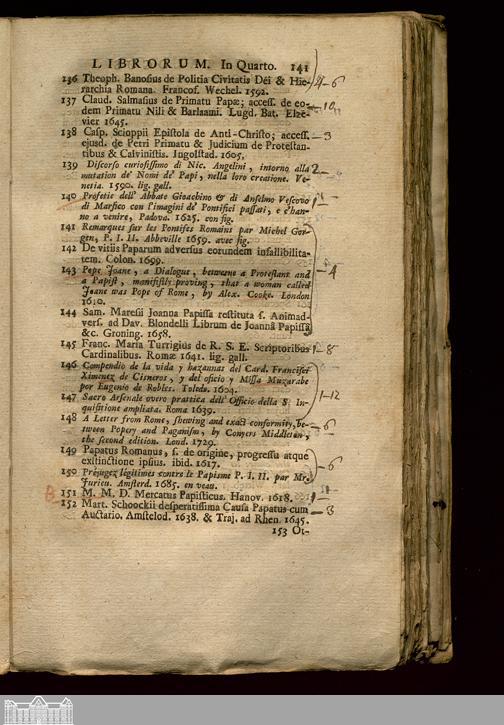 LIBRORUM. In Quarto. 141
136 Theoph. Banosius de Politia Civitatis Dei & Hie-
rarchia Romana. Francof. Wechel. 1592.
137 Claud. Salmasius de Primatu Papæ; access. de eo-
dem Primatu Nili & Barlaami. Lugd. Bat. Elze-
vier 1645.
138 Casp. Scioppii Epistola de Anti-Christo; access.
ejusd. de Petri Primatu & Judicium de Protestan-
tibus & Calvinistis. Ingolstad. 1605.
139 Discorso curiosissimo di Nic. Angelini, intorno alla
mutation de' Nomi de' Papi, nella loro creatione. Ve-
netia. 1590. lig. gall.
140 Profetie dell' Abbate Gioachino & di Anselmo Vescovo
di Marsico con l'imagini de' Pontifici passati, e c'han-
no a venire, Padova. 1625. con fig.
141 Remarques sur les Pontifes Romains par Michel Gor-
gen, P. I. II. Abbeville 1659. avec fig.
142 De vitiis Paparum adversus eorundem infallibilita-
tem. Colon. 1699.
143 Pepe Joane, a Dialogue, betweene a Protestant and
a Papist, manifistly proving, that a woman called
Joane was Pope of Rome, by Alex. Cooke. London
1610.
144 Sam. Maresii Joanna Papissa restituta s. Animad-
vers. ad Dav. Blondelli Librum de Joannâ Papissâ
&c. Groning. 1658.
145 Franc. Maria Turrigius de R. S. E. Scriptoribus
Cardinalibus. Romæ 1641. lig. gall.
146 Compendio de la vida y hazannas del Card. Francisco
Ximenez de Cisneros, y del oficio y Missa Muzarabe
por Eugenio de Robles. Toledo. 1604.
147 Sacro Arsenale overo prattica dell' Officio della S. In-
quisitione ampliata. Roma 1639.
148 A Letter from Rome, shewing and exact conformity, be-
tween Popery and Paganism, by Conyers Middleton,
the second edition. Lond. 1729.
149 Papatus Romanus, s. de origine, progressu atque
exstinctione ipsius. ibid. 1617.
150 Préjugez légitimes contre le Papisme P. I. II. par Mr.
Jurieu. Amsterd. 1685. en veau.
151 M. M. D. Mercatus Papisticus. Hanov. 1618.
152 Mart. Schoockii desperatissima Causa Papatus cum
Auctario. Amstelod. 1638. & Traj. ad Rhen. 1645.
153 Ot-